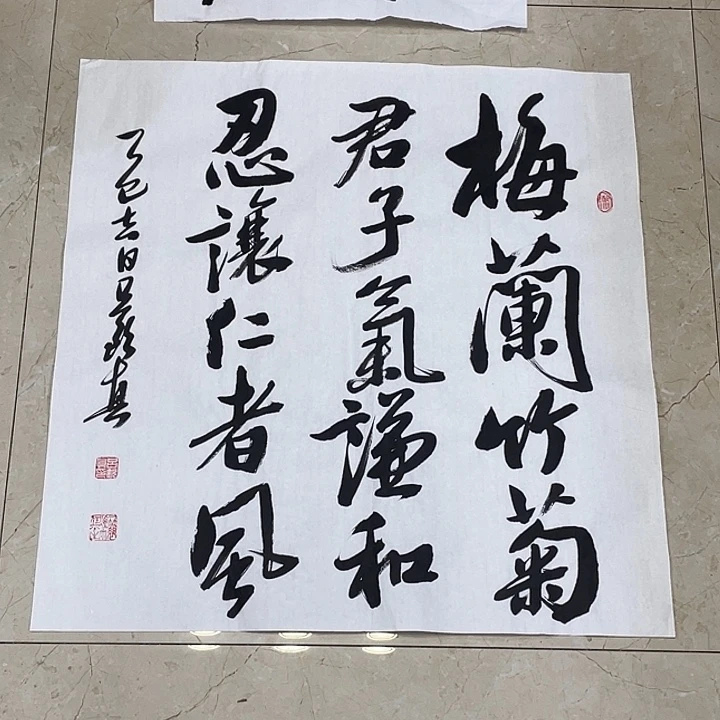 梅蘭竹菊
君子氣謙和
忍讓仁者風
乙巳吉日吕義真